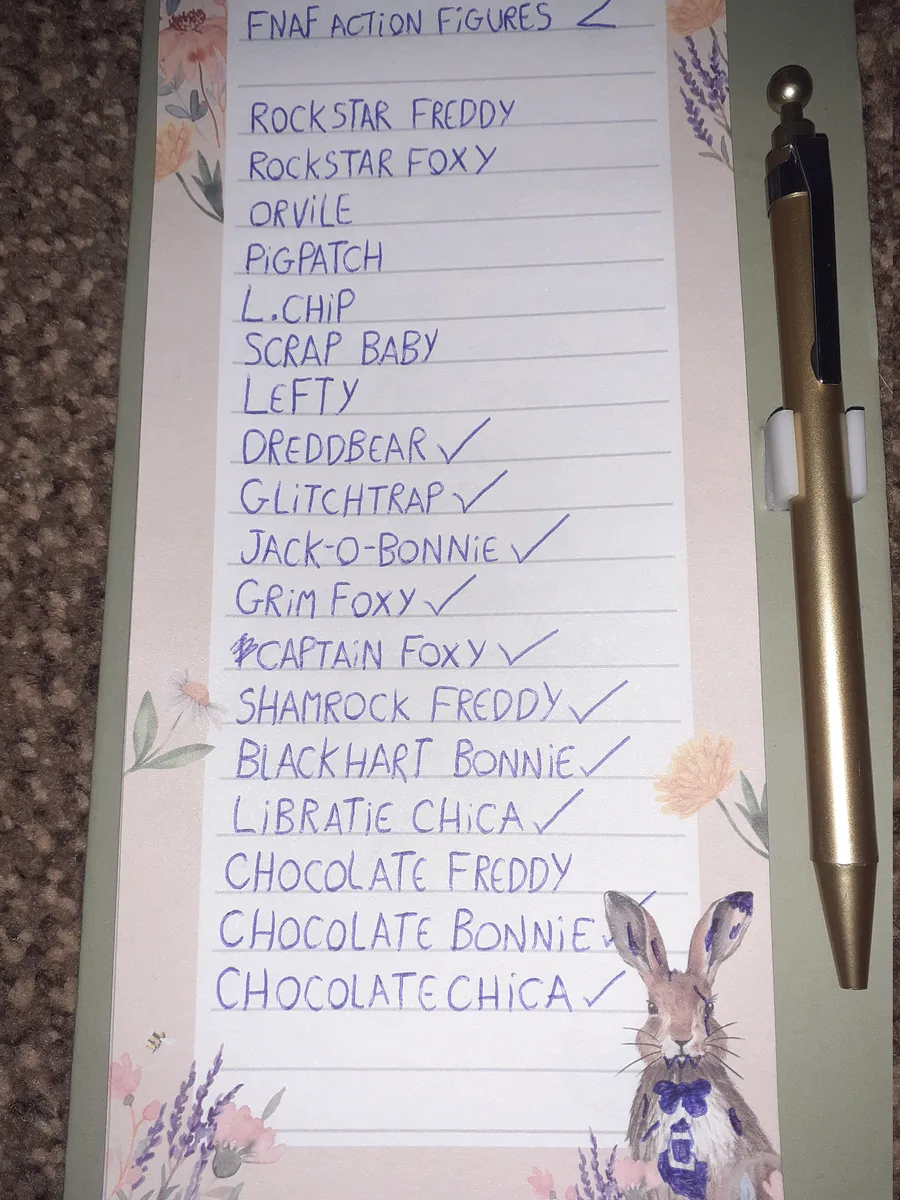 FNAF ACTiON FiGURES ∠
ROCKSTAR FREDDY
ROCKSTAR FOXY
ORViLE
PiGPATCH
L.CHiP
SCRAP BABY
LEFTY
DREDDBEAR ✓
GLiTCHTRAP ✓
JACK-O-BONNiE ✓
GRiM FOXY ✓
CAPTAiN FOXY ✓
SHAMROCK FREDDY ✓
BLACKHART BONNiE ✓
LiBRATiE CHiCA ✓
CHOCOLATE FREDDY
CHOCOLATE BONNiE ✓
CHOCOLATE CHiCA ✓